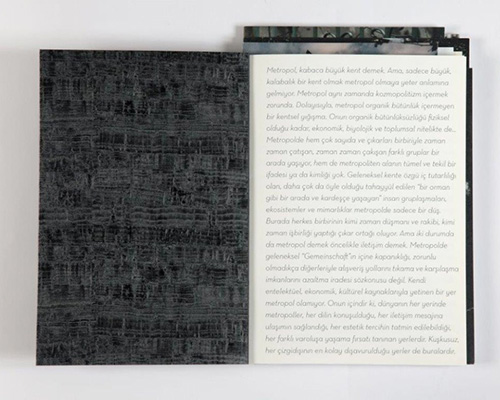 Metropol, kabaca büyük kent demek. Ama, sadece büyük,
kalabalık bir kent olmak metropol olmaya yeter anlamına
gelmiyor. Metropol aynı zamanda kozmopolitizm içermek
zorunda. Dolayısıyla, metropol organik bütünlük içermeyen
bir kentsel yığışma. Onun organik bütünlüksüzlüğü fiziksel
olduğu kadar, ekonomik, biyolojik ve toplumsal nitelikte de...
Metropolde hem çok sayıda ve çıkarları birbiriyle zaman
zaman çatışan, zaman zaman çakışan farklı gruplar bir
arada yaşıyor, hem de metropoliten alanın tümel ve tekil bir
ifadesi ya da kimliği yok. Geleneksel kente özgü iç tutarlılığı
olan, daha çok da öyle olduğu tahayyül edilen "bir orman
gibi bir arada ve kardeşçe yaşayan" insan gruplaşmaları,
ekosistemler ve mimarlıklar metropolde sadece bir düş.
Burada herkes birbirinin kimi zaman düşmanı ve rakibi, kimi
zaman işbirliği yaptığı çıkar ortağı oluyor. Ama iki durumda
da metropol demek öncelikle iletişim demek. Metropolde
geleneksel "Gemeinschaft"ın içine kapanıklığı, zorunlu
olmadıkça diğerleriyle alışveriş yollarını tıkama ve karşılaşma
imkanlarını azaltma iradesi sözkonusu değil. Kendi
entelektüel, ekonomik, kültürel kaynaklarıyla yetinen bir yer
metropol olamıyor. Onun içindir ki, dünyanın her yerinde
metropoller, her dilin konuşulduğu, her iletişim mesajına
ulaşımın sağlandığı, her estetik tercihin tatmin edilebildiği,
her farklı varoluşa yaşama fırsatı tanınan yerlerdir. Kuşkusuz,
her çizgidışının en kolay dışavurulduğu yerler de buralardır.